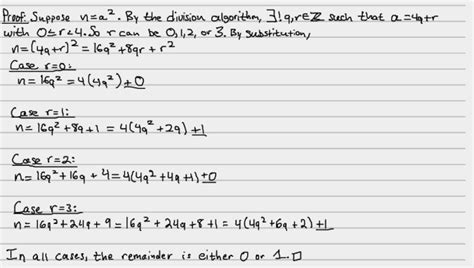 Proof: Suppose n=a². By the division algorithm, ∃! q,r∈ℤ such that a=4q+r
with 0≤r<4. So r can be 0,1,2, or 3. By substitution,
n=(4q+r)²=16q²+8qr+r²
Case r=0:
n=16q²=4(4q²)+0
Case r=1:
n=16q²+8q+1=4(4q²+2q)+1
Case r=2:
n=16q²+16q+4=4(4q²+4q+1)+0
Case r=3:
n=16q²+24q+9=16q²+24q+8+1=4(4q²+6q+2)+1
In all cases, the remainder is either 0 or 1. □